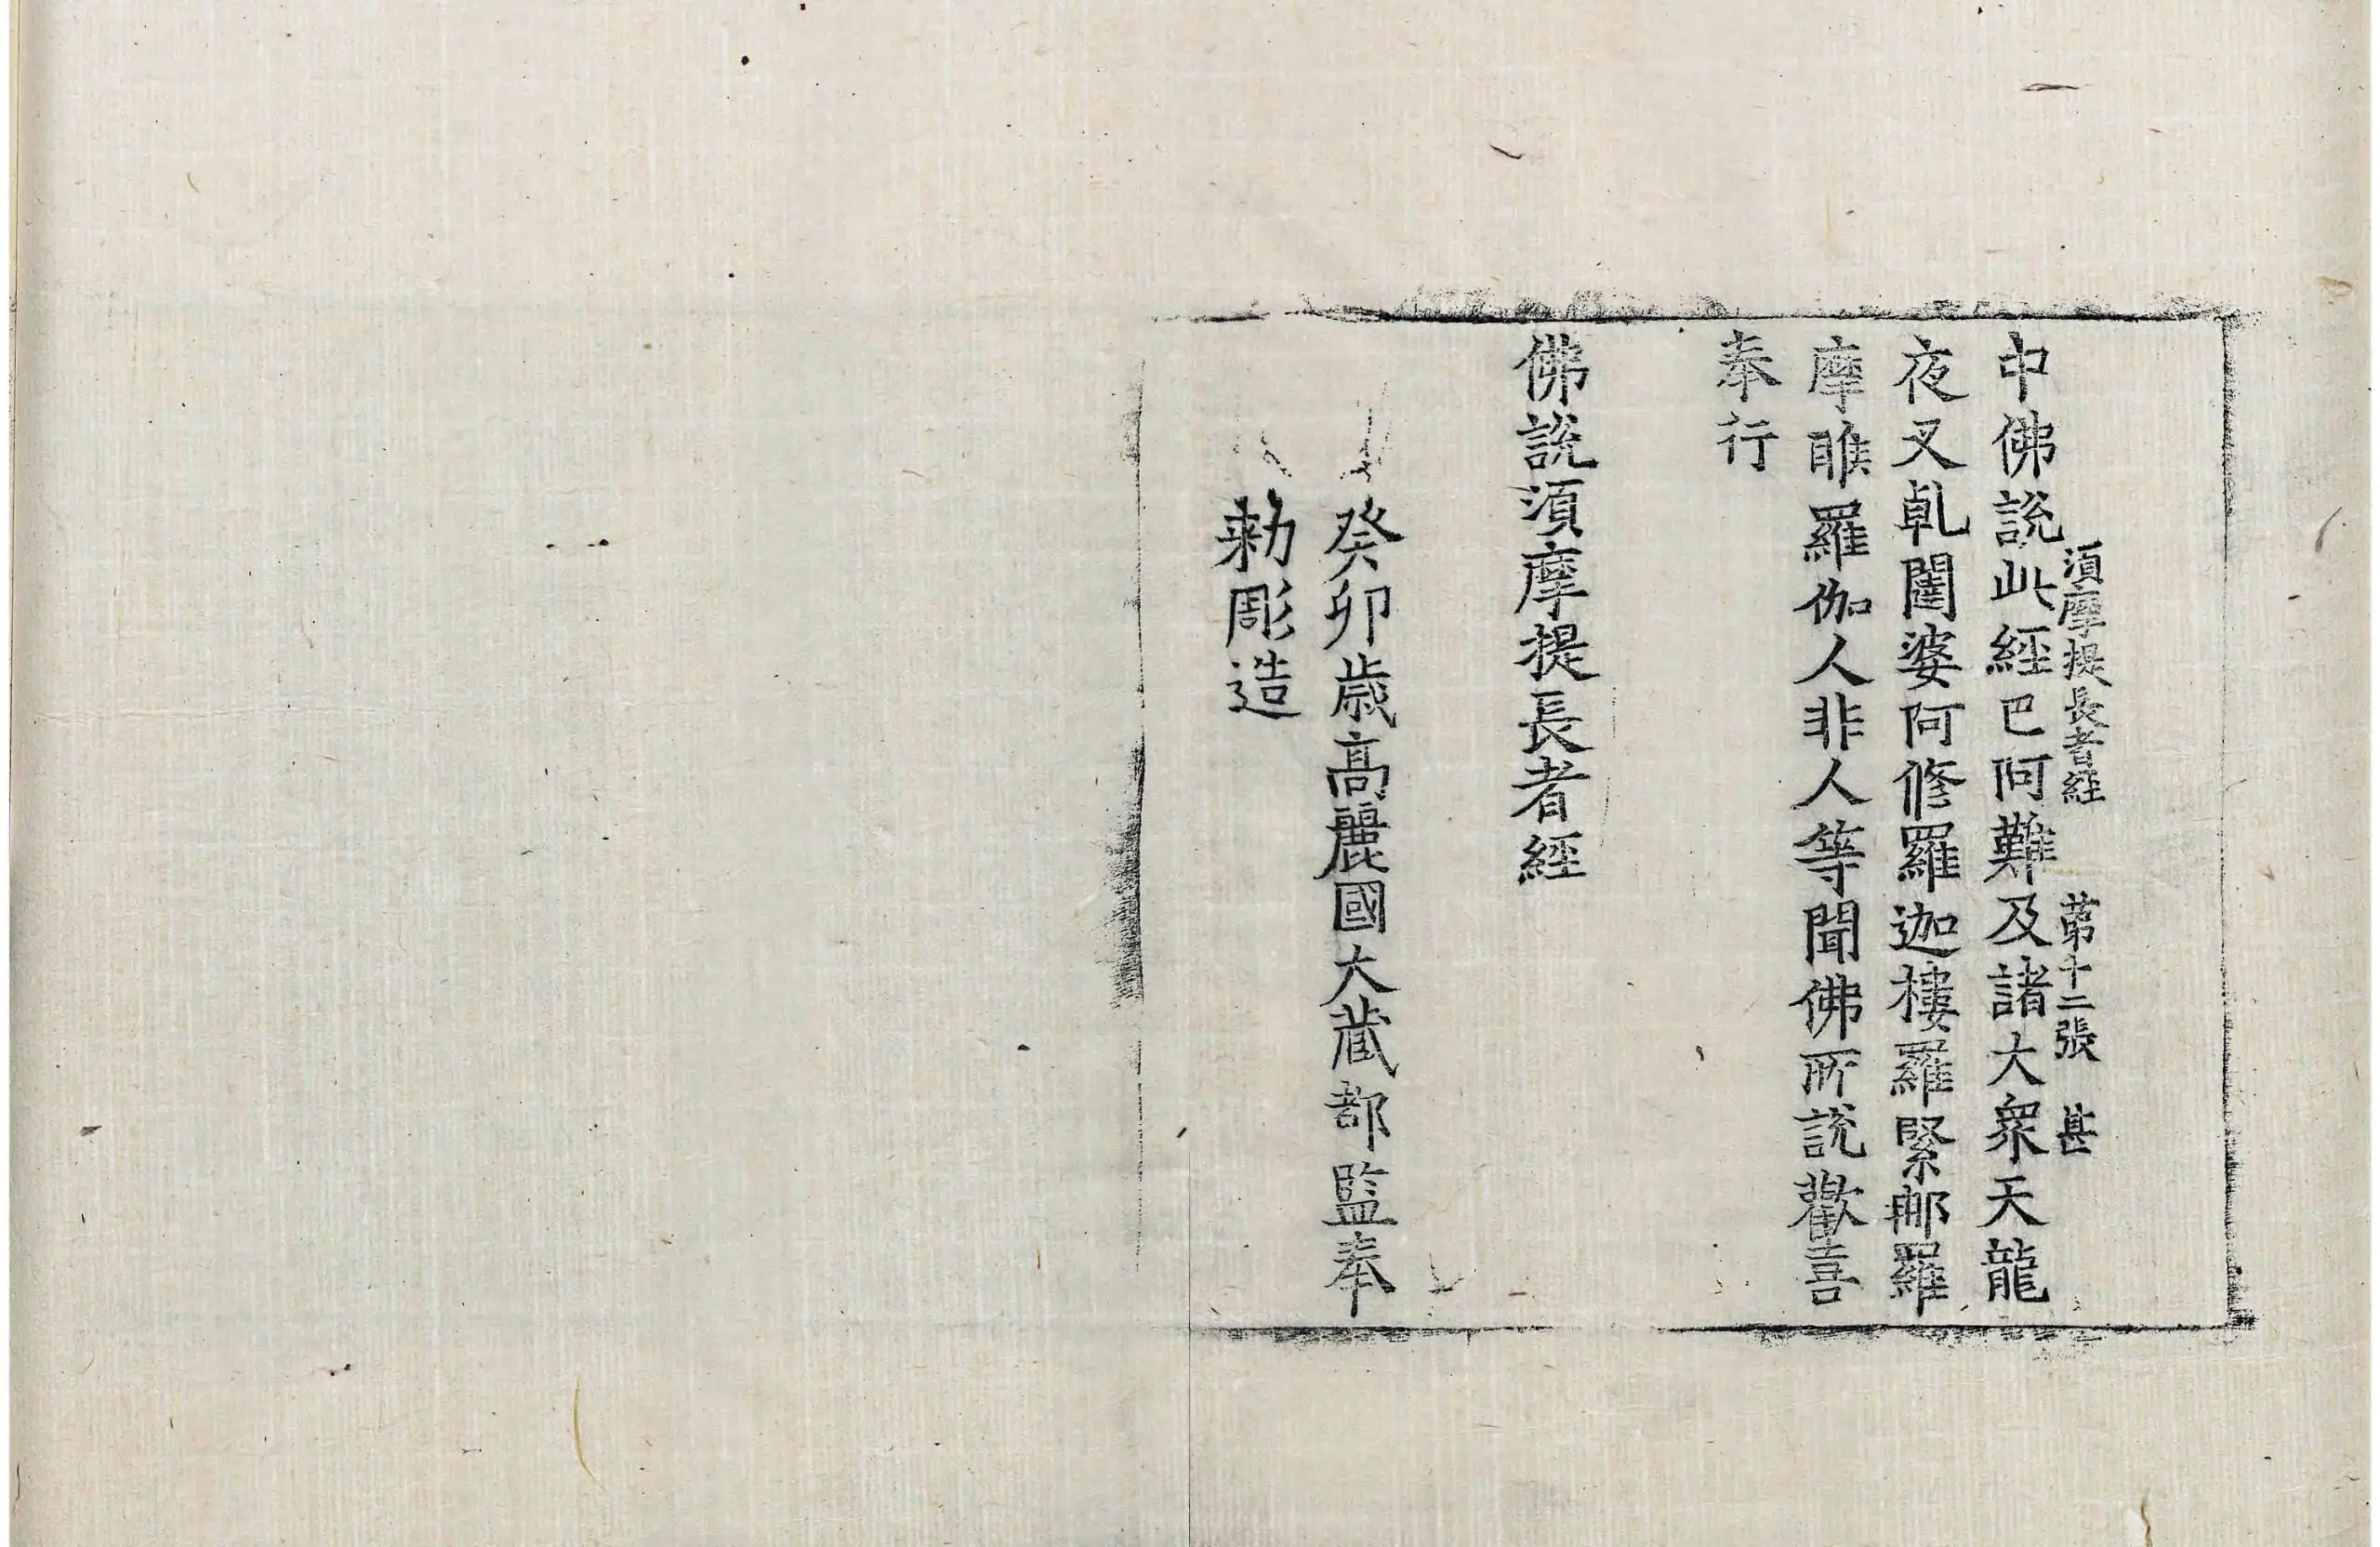 須摩提長者經 第十二張 甚
中佛說此經已阿難及諸大衆天龍
夜叉乹闥婆阿修羅迦樓羅緊那羅
摩睺羅伽人非人等聞佛所說歡喜
奉行
佛說須摩提長者經
癸卯歲高麗國大藏都監奉
勅彫造